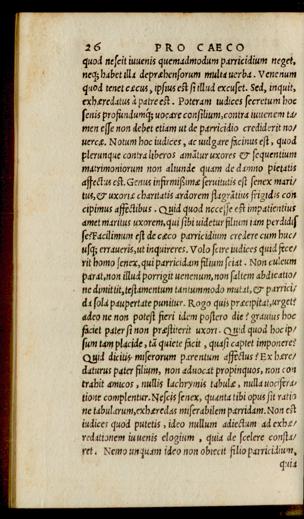 26 PRO CAECO
quod nescit iuuenis quemadmodum parricidium neget,
neq; habet illa depræhensorum multa uerba. Venenum
quod tenet cæcus, ipsius est si illud excuset. Sed, inquit,
exhæredatus à patre est. Poteram iudices secretum hoc
senis profundumq́; uocare consilium, contra iuuenem ta=
men esse non debet etiam ut de parricidio crediderit no=
uercæ. Notum hoc iudices, ac uulgare facinus est, quod
plerunque contra liberos amātur uxores & sequentium
matrimoniorum non aliunde quam de damno pietatis
affectus est. Genus infirmissimæ seruitutis est senex mari=
tus, & uxoriæ charitatis ardorem flagrātius frigidis con
cipimus affectibus. Quid quod necesse est impatientius
amet maritus uxorem, qui sibi uidetur filium iam perdidis
se? Facillimum est de cæco parricidium credere cum huc=
usq; erraueris, ut inquireres. Volo scire iudices quid fece/
rit homo senex, qui parricidam filium sciat. Non culeum
parat, non illud porrigit uenenum, non saltem abdicatio/
ne dimittit, testamentum tantummodo mutat, & parrici=
da sola paupertate punitur. Rogo quis præcipitat, urget?
adeo ne non potest fieri idem postero die? grauius hoc
faciet pater si non præstiterit uxori. Quid quod hoc ip/
sum tam placide, tā quiete facit, quasi captet imponere?
Quid dicitis miserorum parentum affectus? Ex hære/
daturus pater filium, non aduocat propinquos, non con
trahit amicos, nullis lachrymis tabulæ, nulla uocifera=
tione complentur. Nescis senex, quanta tibi opus sit ratio
ne tabularum, exhæredas miserabilem parridam. Non est
iudices quod putetis, ideo nullum adiectum ad exhæ/
redationem iuuenis elogium, quia de scelere consta/
ret. Nemo unquam ideo non obiecit filio parricidium,
quia